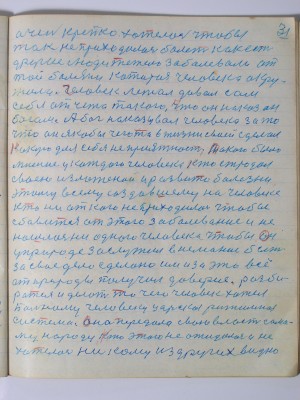 31
а чем крепко хотелось чтобы
так не приходилось болеть как ет
люди тяжело заболевали от
той болезни которая человека окру
жила. Человек лежал давал сам
себя от чего такого, что он наказан
богом. А бог наказывал человека за то
что он якобы чего то в жизни своей сделал
какую для себя неприятность. Такого было
мнение у каждого человека кто страдал
своею изложеной и развито болезни
этому всему создавшему на человеке
кто ни от кого не приходилось чтобы
сбавится от этого заболевание и не
нашлось ни одного человека чтобы Он
у природе заслужил внимание был
за свое дело сделано им и за это всё
от природы получил доверие. разби
рался и делал то чего человек хотел
По к нему человеку царская
система. Она передала свою власть само
му народу кто этого не ожидал и не
хотелось никому из других видно